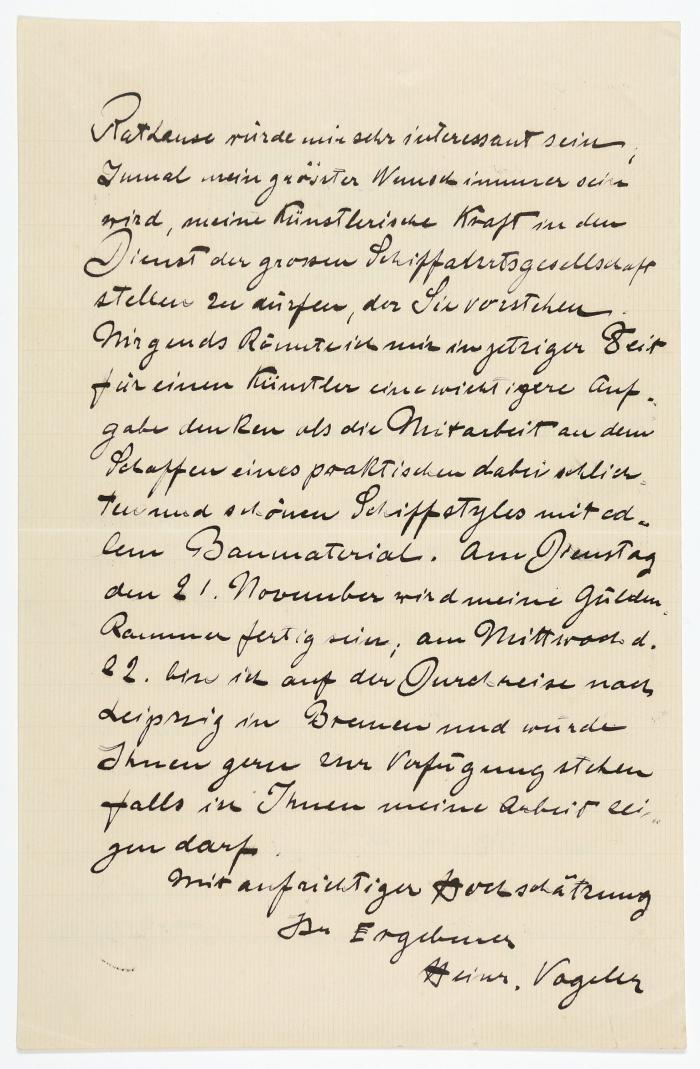 Rathause würde mir sehr interessant sein,
Zumal mein grösster Wunsch immer sein
wird, meine künstlerische Kraft in den
Dienst der grossen Schiffahrtsgesellschaft
stellen zu dürfen, der Sie vorstehen.
Nirgends könnte ich mir in jetziger Zeit
für einen Künstler eine wichtigere Auf-
gabe denken als die Mitarbeit an dem
Schaffen eines praktischen dabei schlich-
ten und schönen Schiffstyles mit ed-
lem Baumaterial. Am Dienstag
den 21. November wird meine Gülden-
kammer fertig sein, am Mittwoch d.
22. bin ich auf der Durchreise nach
Leipzig in Bremen und würde
Ihnen gern zur Verfügung stehen
falls ich Ihnen meine Arbeit zei-
gen darf.
Mit aufrichtiger Hochschätzung
Ihr Ergebener
Heinr. Vogeler